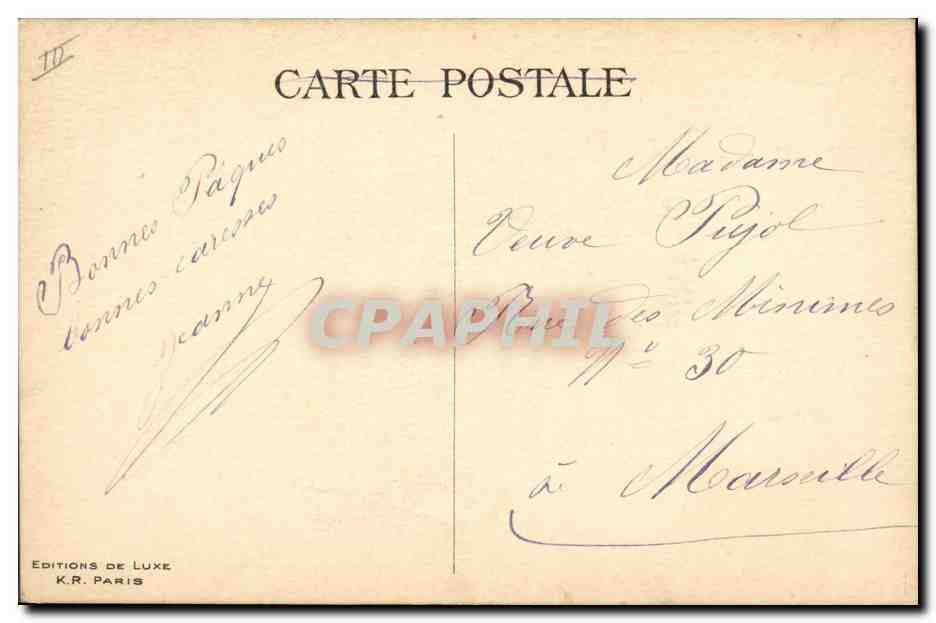 10
CARTE POSTALE
Bonnes Pâques
bonnes caresses
Jeanne
Madame
Veuve Pujol
Rue des Minimes
N° 30
à Marseille
CPAPHIL
EDITIONS DE LUXE
K.R. PARIS